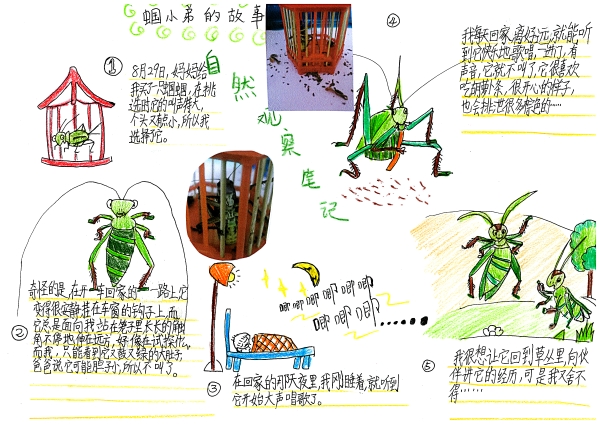 蝈小弟的故事
自然观察笔记
①
8月29日,妈妈给
我买了一只蝈蝈,在挑
选时它的叫声特大,
个头又有点小,所以我
选择了它。
②
奇怪的是,在开车回家的一路上,它
变得很安静,挂在车窗的钩子上,而
它总是面向我,站在笼子里长长的触
角不停地伸在远方,好像在试探什么,
而我,只能看到它又鼓又绿的大肚子,
爸爸说它可能胆子小,所以不叫了。
③
唧 唧 唧 唧 唧 唧
唧 唧 唧……
在回家的那天夜里,我刚睡着,就听到
它开始大声唱歌了。
④
我每天回家,离好远,就能听
到它快乐地歌唱,一进门,有
声音,它就不叫了,它很喜欢
吃胡萝卜条,很开心的样子,
也会排泄很多棕色的……
⑤
我很想让它回到草丛里,向伙
伴讲它的经历,可是我又舍不
得……